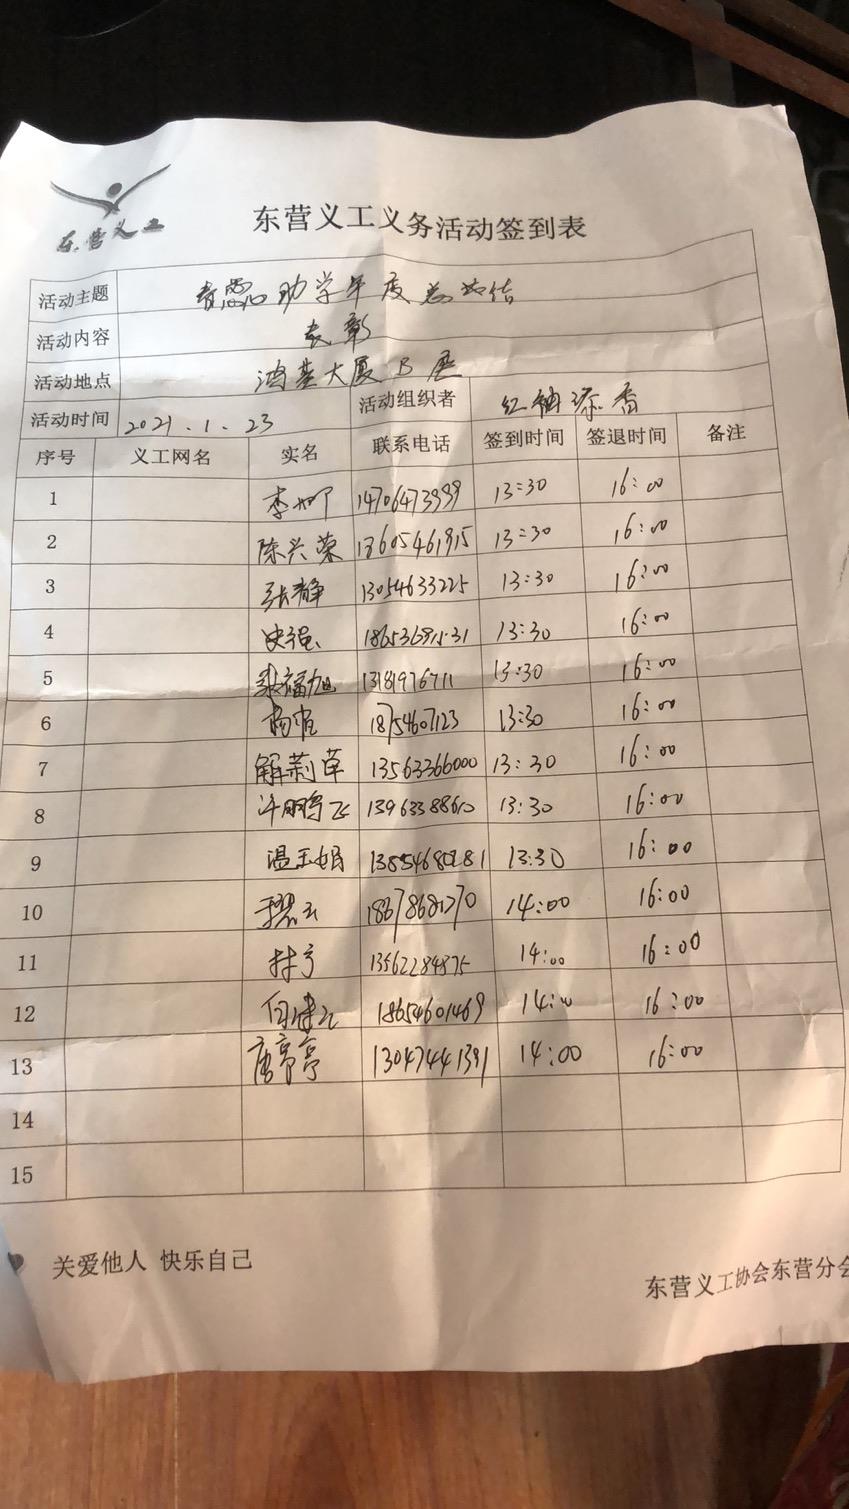 东营义工
东营义工义务活动签到表
活动主题 助学年度总结
活动内容 表彰
活动地点 鸿基大厦B座
活动时间 2021.1.23 活动组织者 红袖添香
序号 义工网名 实名 联系电话 签到时间 签退时间 备注
1 李 14706473999 13:30 16:00
2 陈兴荣 13605461915 13:30 16:00
3 张静 13054633225 13:30 16:00
4 史强 18653691531 13:30 16:00
5 福旭 13181976711 13:30 16:00
6 杨 18754607123 13:30 16:00
7 解莉草 13563366000 13:30 16:00
8 许鹏飞 13963388610 13:30 16:00
9 温玉娟 13854680281 13:30 16:00
10 18678681270 14:00 16:00
11 13562284875 14:00 16:00
12 18654601469 14:00 16:00
13 唐亭亭 13047441391 14:00 16:00
14
15
关爱他人 快乐自己
东营义工协会东营分会